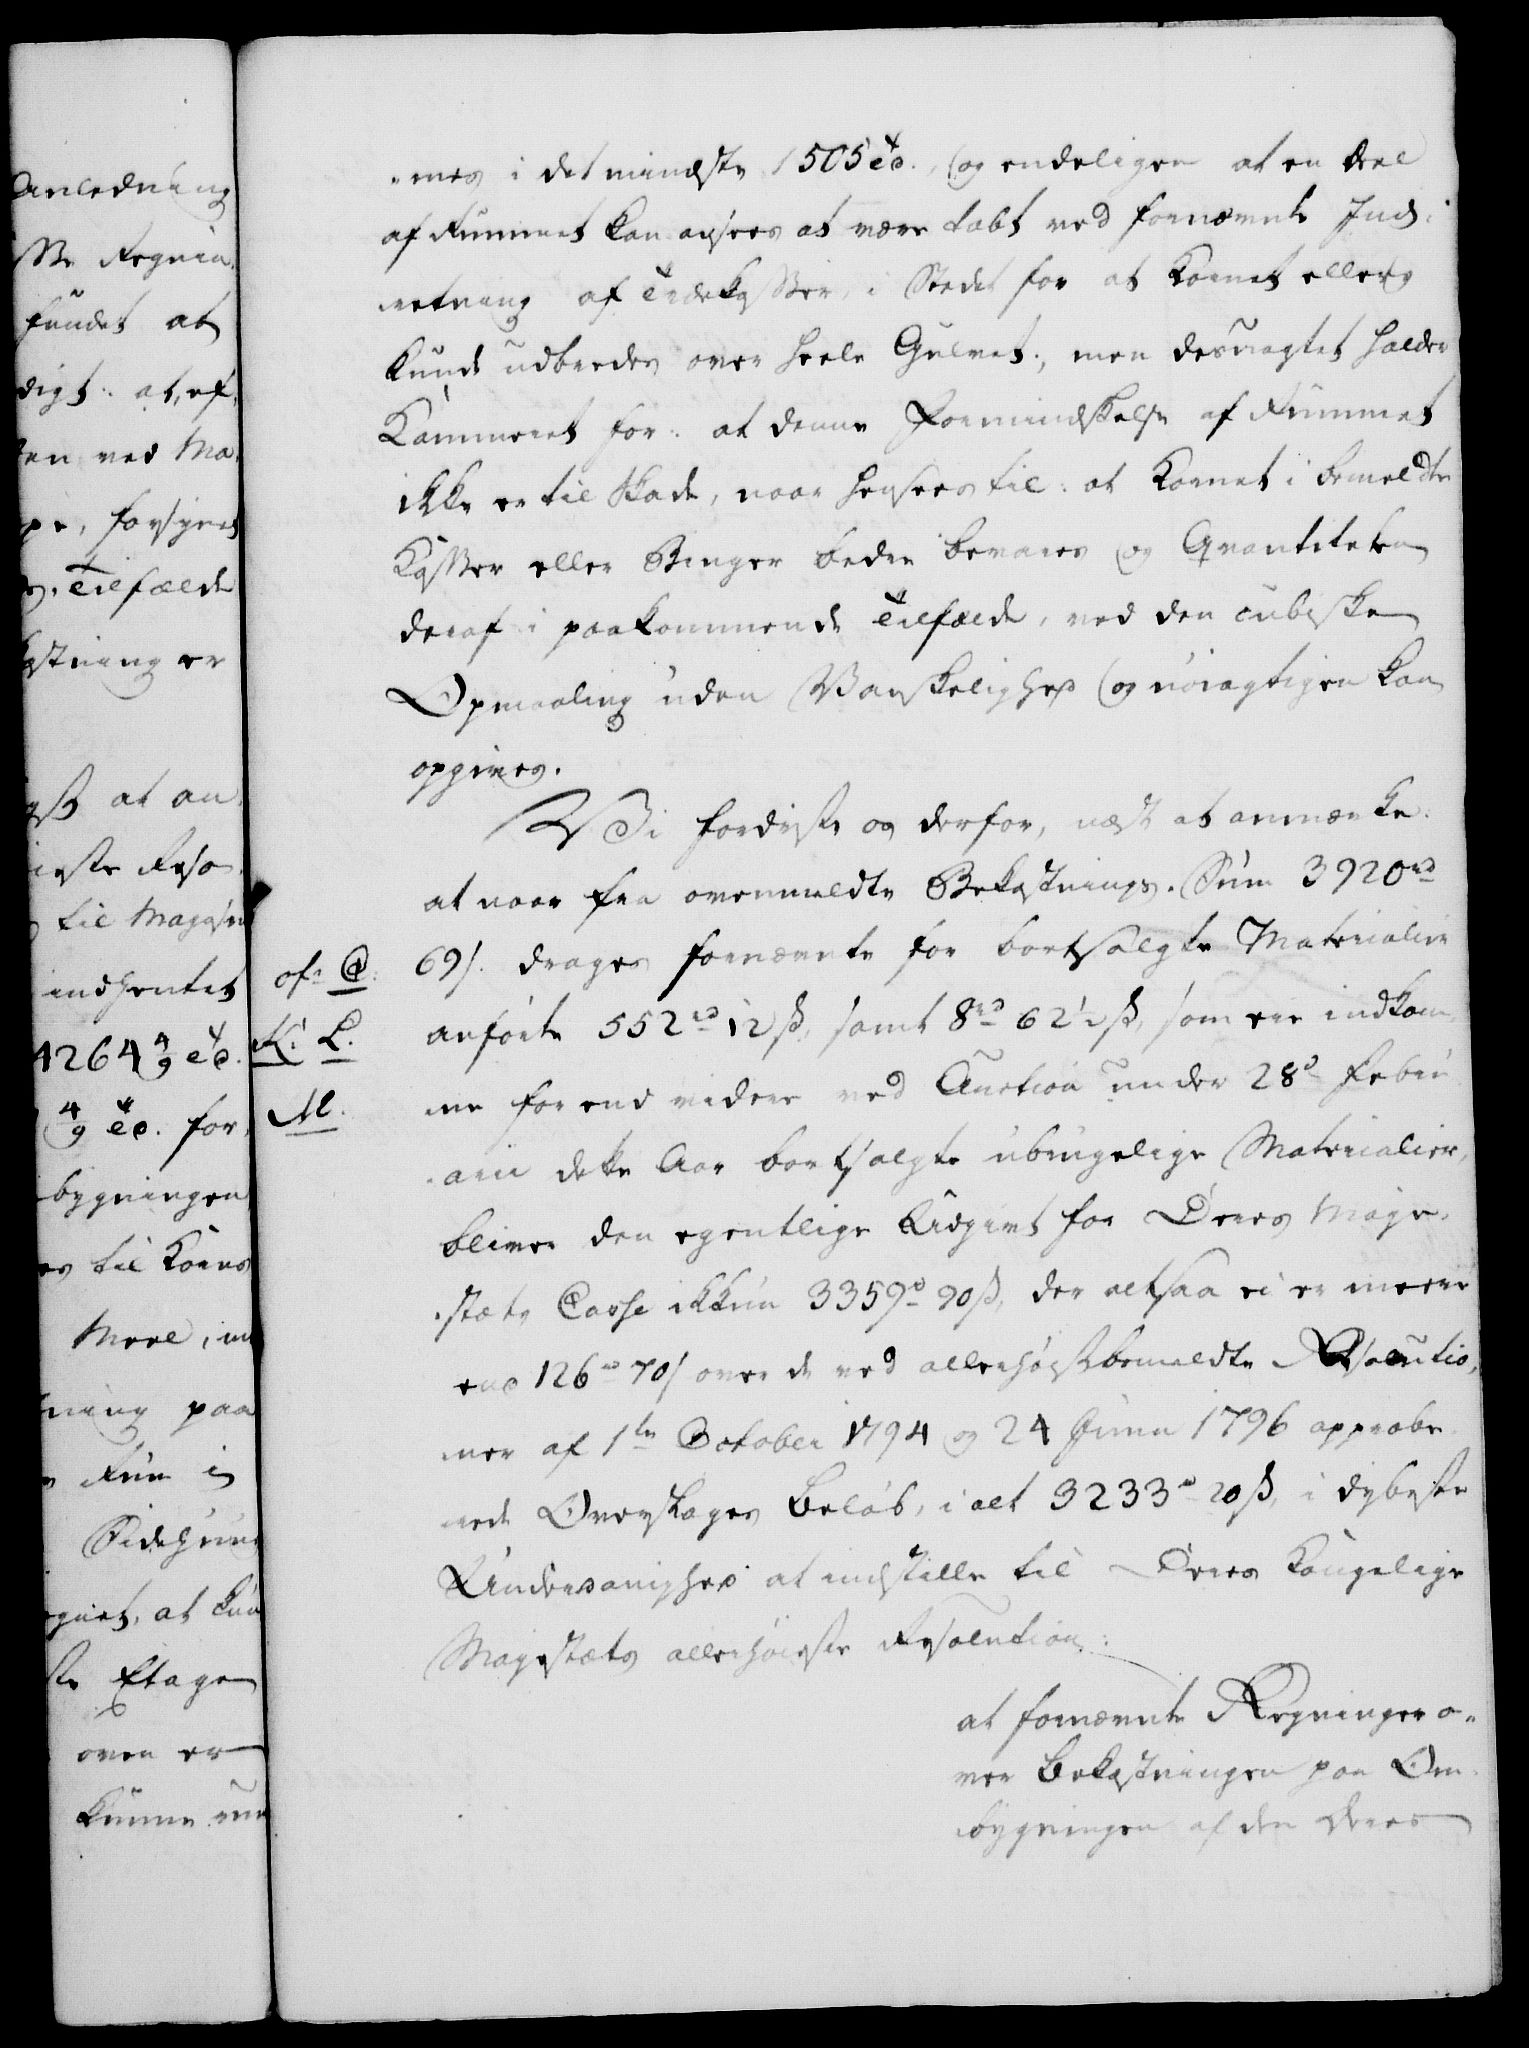 Anledning
fundet at
digt: at, ef-
ten ved Ma-
pe, forsynes
Tilfælde
kostning er
at an-
til Magasin
indhentet
4264 4/9 Td.
4/9 Td. for-
bygningen
es til Korns
Meel, in
ning paa
Rum i
Sidehuus
egnet, at kun
Etage
oven er
kunne
-mes i det mindste 1505 Td., og endeligen at en Deel
af Rummet kan ansees at være tabt ved fornævnte Ind-
retning af Trækasser, i Stedet for at Kornet ellers
kunde udbredes over heele Gulvet; men desuagtet holder
Kammeret for: at denne Formindskelse af Rummet
ikke er til Skade, naar hensees til: at Kornet i bemeldte
Kasser eller Binger bedre bevares og Qvantiteten
deraf i paakommende Tilfælde, ved den cubiske
Opmaaling uden Vanskelighed og nøiagtigen kan
opgives.
Vi fordriste os derfor, næst at anmærke:
at naar fra ovenmeldte Bekostnings-Sum 3920 rd
69 s. drages fornævnte for bortsolgte Materialier
anførte 552 rd 12 ß, samt 8 rd 62½ ß, som ere indkom-
ne for end videre ved Auction under 28d Febru-
arii dette Aar bortsolgte ubrugelige Materialier,
bliver den egentlige Udgivt for Deres Maje-
stæts Casse ikkun 3359 rd 90 ß, der altsaa ei er meere
end 126 rd 70 s over de ved allerhøistbemeldte Resolutio-
ner af 1te October 1794 og 24 Junii 1796 approbe-
rede Overslages Beløb, i alt 3233 rd 20 ß, i dybeste
Underdanighed at indstille til Deres Kongelige
Majestæts allerhøieste Resolution:
at fornævnte Regninger o-
ver Bekostningen paa Om-
bygningen af den Deres
of: C:
K: L.
M.